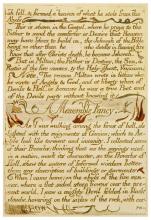 & fell. & formed a heaven of what he stole from the
Abyss
This is shewn in the Gospel, where he prays to the
Father to send the comforter or Desire that Reason
may have Ideas to build on, the Jehovah of the Bible
being no other than he who dwells in flaming fire
Know that after Christs death, he became Jehovah.
But in Milton; the Father is Destiny, the Son, a
Ratio of the five senses, & the Holy-ghost, Vacuum!
Note. The reason Milton wrote in fetters when
he wrote of Angels & God, and at liberty when of
Devils & Hell, is because he was a true Poet and
of the Devils party without knowing it
A Memorable Fancy.
As I was walking among the fires of hell, de-
lighted with the enjoyments of Genius; which to An-
gels look like torment and insanity. I collected some
of their Proverbs: thinking that as the sayings used
in a nation, mark its character, so the Proverbs of
Hell, shew the nature of Infernal wisdom better
than any description of buildings or garments
When I came home; on the abyss of the five sen-
ses, where a flat sided steep frowns over the pre-
sent world. I saw a mighty Devil folded in black
clouds, hovering on the sides of the rock, with cor-